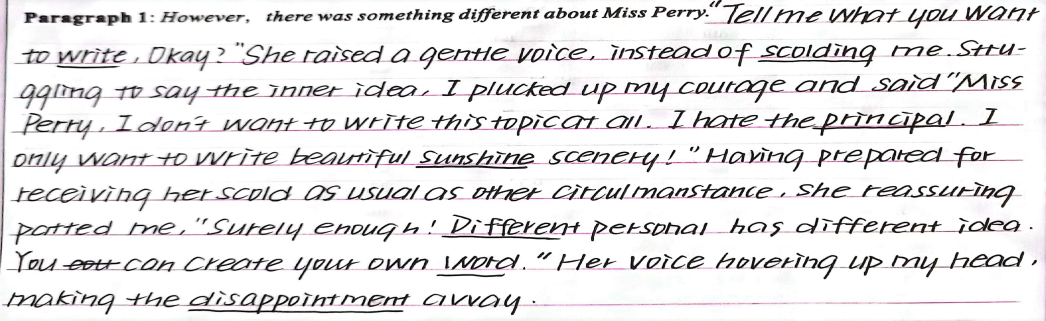 Paragraph 1: However, there was something different about Miss Perry." Tell me what you want
to write, Okay? "She raised a gentle voice, instead of scolding me. Stru-
ggling to say the inner idea, I plucked up my courage and said "Miss
Perry, I don't want to write this topic at all. I hate the principal. I
only want to write beautiful sunshine scenery! "Having prepared for
receiving her scold as usual as other circulmanstance, she reassuring
patted me, "Surely enough! Different personal has different idea.
You can create your own word." Her voice hovering up my head,
making the disappointment away.